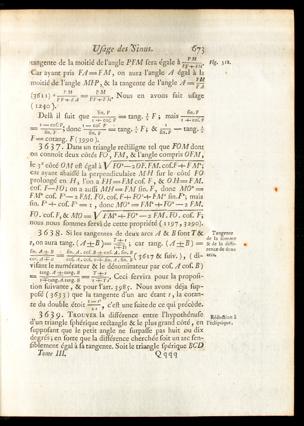 Usage des Sinus. 673
tangente de la moitié de l'angle PFM sera égale à PM/(PF+FM). Fig. 312.
Car ayant pris FA=FM, on aura l'angle A égal à la
moitié de l'angle MFP, & la tangente de l'angle A = PM/PA
(3611) = PM/(PF+FA) = PM/(PF+FM). Nous en avons fait usage
(1240).
Delà il suit que sin. F/(1+cof. F) = tang. ½ F; mais sin. F/(1+cof. F)
= (1-cof. F)/sin. F; donc (1-cof. F)/sin. F = tang. ½ F;
F = cotang. F (3990).
3637. Dans un triangle rectiligne tel que FOM dont
on connoit deux côtés FO, FM, & l'angle compris OFM,
le 3e côté OM est égal à √FO²-2OF.FM.cof.F+FM²;
car ayant abaissé la perpendiculaire MH sur le côté FO
prolongé en H, l'on a FH=FM cof. F, & OH=FM.
cof. F-FO; on a aussi MH=FM sin. F, donc MO²=
FM² cof. F²-2 FM. FO cof. F+FO²+FM² sin. F²; mais
sin. F²+cof. F²=1, donc MO²=FM²+FO²-2 FM.
FO. cof. F, & MO=√FM²+FO²-2 FM. FO. cof. F;
nous nous sommes servi de cette propriété (1197, 3290).
3638. Si les tangentes de deux arcs A & B sont T &
t, on aura tang. (A±B) = (T±t)/(1∓Tt); car tang. (A±B) =
Tangente
de la somme
& de la différence
de deux
arcs.
sin. A±B/cof. A±B = (sin. A. cof. B ± cof. A. sin. B)/(cof. A. cof. B ∓ sin. A. sin. B) (3617 & suiv.), (divisant
le numérateur & le dénominateur par cof. A cof. B)
= (tang. A ± tang. B)/(1∓tang. A tang. B) = (T±t)/(1∓Tt). Ceci servira pour la proposition
suivante, & pour l'art. 3985. Nous avons déja supposé
(3633) que la tangente d'un arc étant t, la cotan.
du double étoit, c'est une suite de ce qui précède.
3639. TROUVER la différence entre l'hypothénuse
d'un triangle sphérique rectangle & le plus grand côté, en
supposant que le petit angle ne surpasse pas huit ou dix
degrés; en sorte que la différence cherchée soit un arc sensiblement
égal à sa tangente. Soit le triangle sphérique BCD
Réduction à
l'écliptique.
Tome III. Qqqq